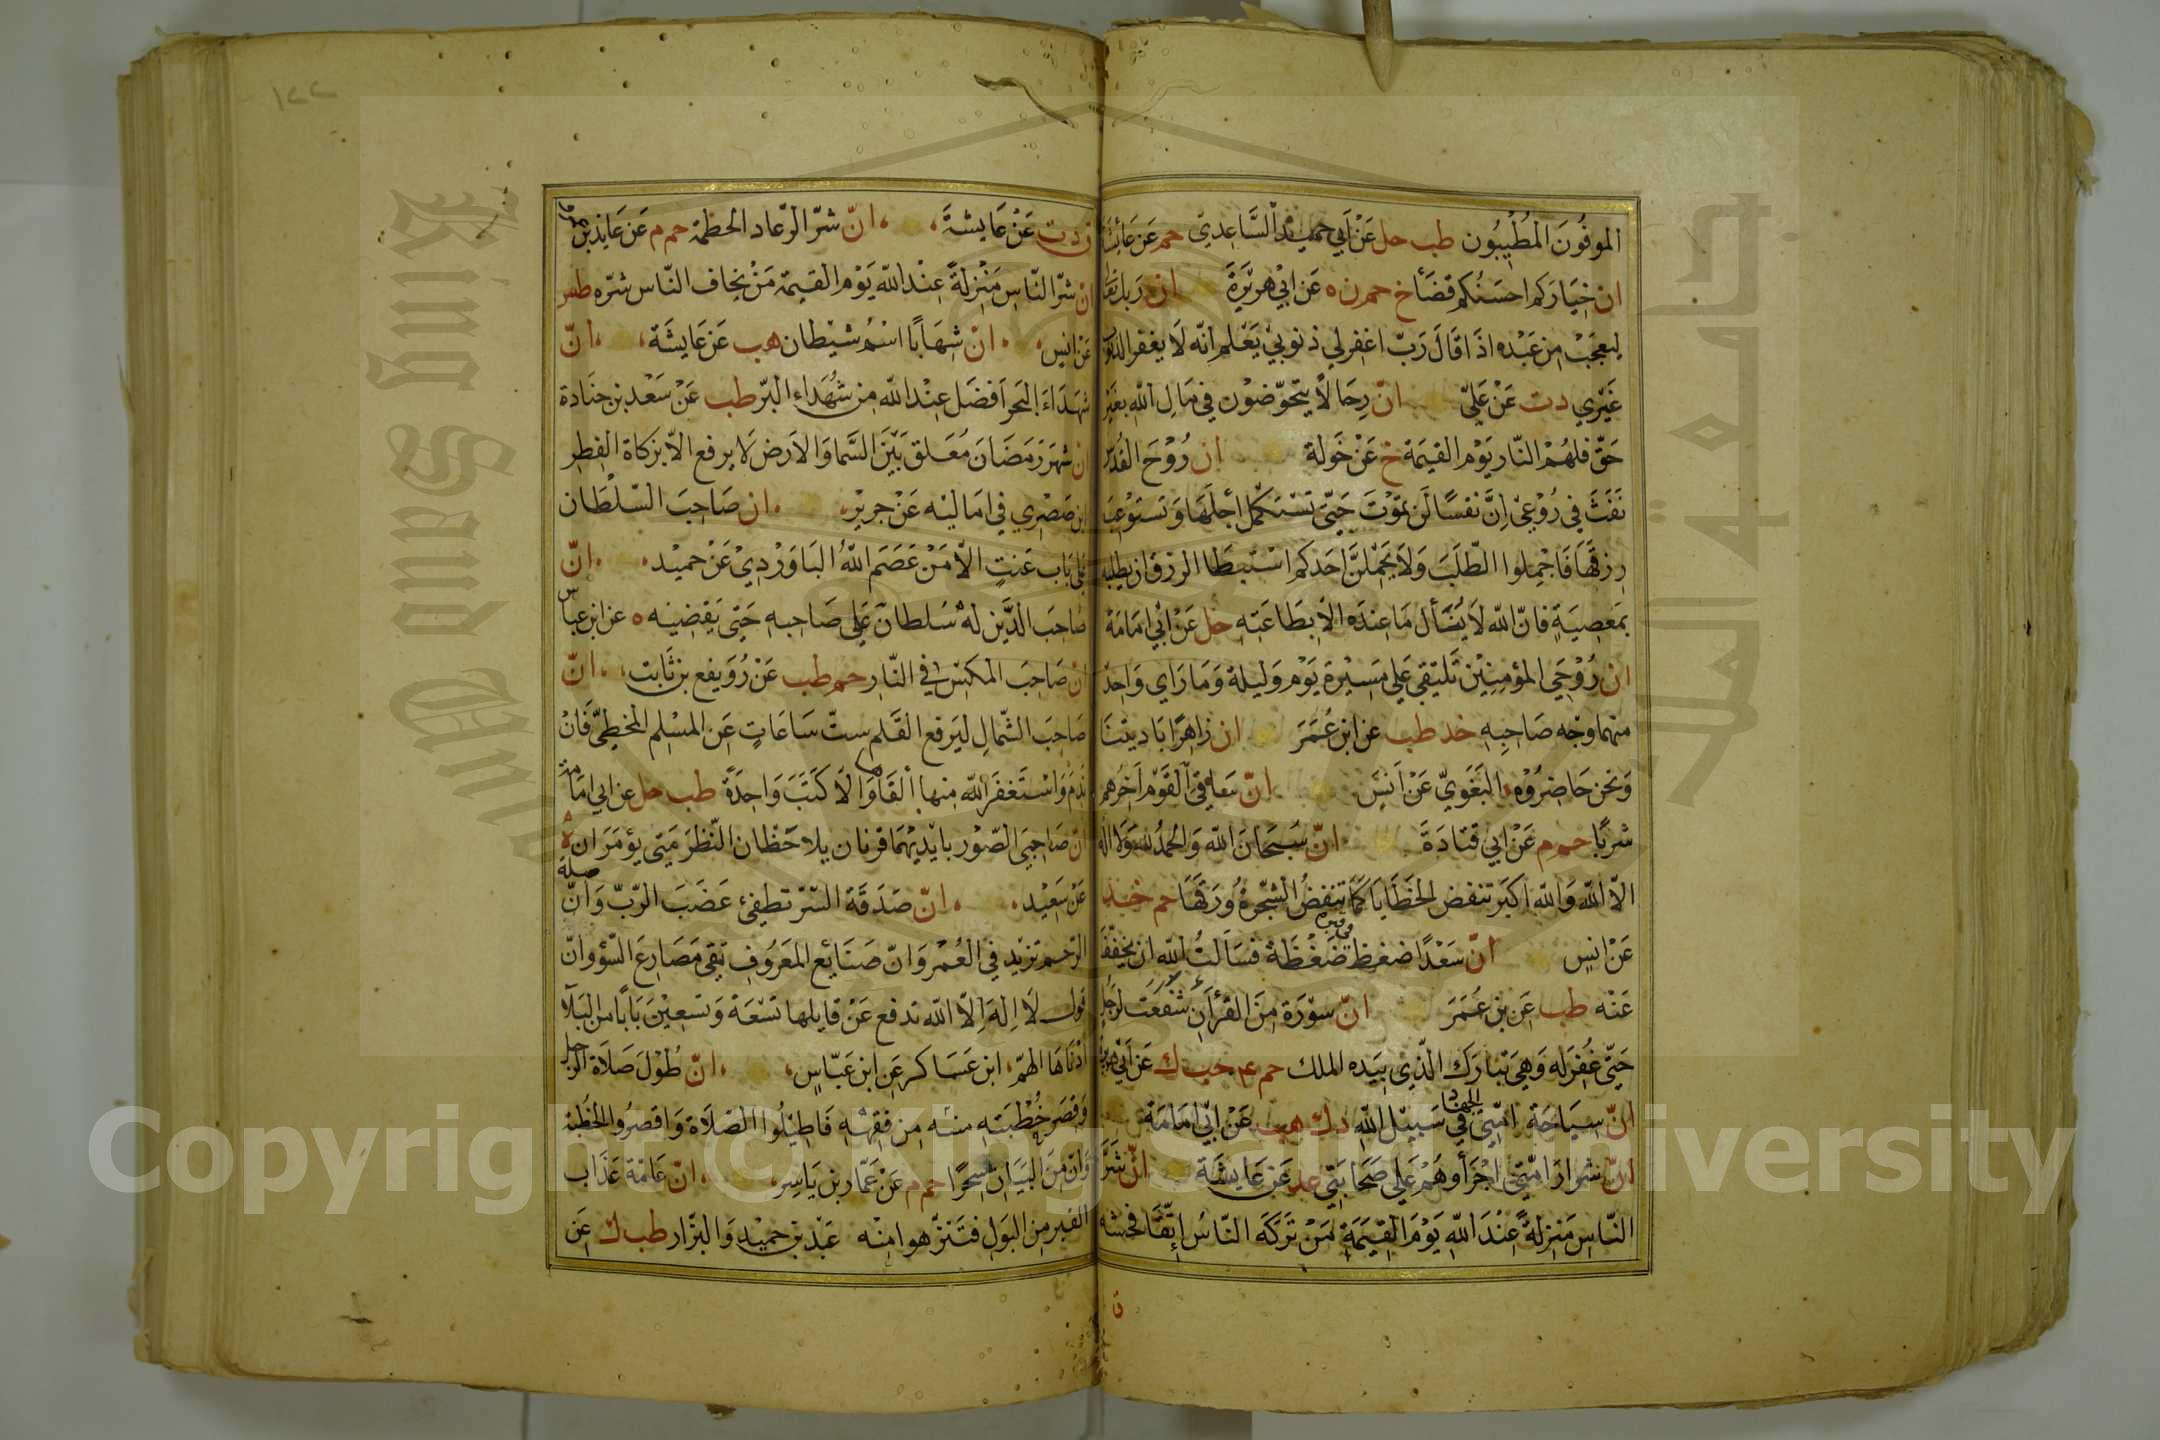 الموفون المطيبون طب حل عن أبي حميد الساعدي حم عن عائشة
ان خياركم احسنكم قضأ خ حم ن ه عن ابي هريرة ان ربك تعا
ليعجب من عبده اذا قال رب اغفر لي ذنوبي يعلم انه لا يغفر الذنوب
غيري دت عن علي ان رجالا يتخوضون في مال الله بغير
حق فلهم النار يوم القيمة خ عن خولة ان روح القدس
نفث في روعي ان نفسا لن تموت حتى تستكمل اجلها وتستوعب
رزقها فاجملوا الطلب ولا يحملن احدكم استبطا الرزق ان يطلبه
بمعصية فان الله لا ينال ما عنده الا بطاعته حل عن أبي امامة
ان روحي المؤمنين تلتقي علي مسيرة يوم وليلة وما راي واحد
منهما وجه صاحبه خد طب عن ابن عمر ان زاهرا باديتنا
ونحن حاضروه البغوي عن انس ان ساقي القوم آخرهم
شربا حم م عن ابي قتادة ان سبحان الله والحمد لله ولا اله
الا الله والله اكبر تنفض الخطايا كما تنفض الشجرة ورقها حم خد
عن انس ان سعدا ضغط في قبره ضغطة فسألت الله ان يخفف
عنه طب عن بن عمر ان سورة من القرآن شفعت لرجل
حتى غفر له وهي تبارك الذي بيده الملك حم عم حب ك عن ابي هريرة
ان سياحة امتي الجهاد في سبيل الله د ك هب عن ابي امامة
ان شرار امتي اجرأوهم علي صحابتي عد عن عايشة ان شر
الناس منزلة عند الله يوم القيمة من تركه الناس اتقا فحشه
ق
١٢٢
ق دت عن عايشة ان شر الرعاد الحطمة حم م عن عايذ بن عمرو
ان شر الناس منزلة عند الله يوم القيمة من يخاف الناس شره طس
عن انس ان شهابا اسم شيطان هب عن عايشة ان
شهداء البحر افضل عند الله من شهداء البر طب عن سعد بن جنادة
ان شهر رمضان معلق بين السما والارض لا يرفع الا بزكاة الفطر
ابن صصري في اماليه عن جرير ان صاحب السلطان
علي باب عنت الا من عصم الله الباوردي عن حميد ان
صاحب الدين له سلطان علي صاحبه حتى يقضيه ه عن ابن عباس
ان صاحب المكس في النار حم طب عن رويفع بن ثابت ان
صاحب الشمال ليرفع القلم ست ساعات عن المسلم المخطئ فان
ندم واستغفر الله منها ألقاها والا كتب واحدة طب حل عن ابي امامة
ان صاحبي الصور بايديهما قرنان يلاحظان النظر متى يؤمران ه
عن سعيد ان صدقة السر تطفئ غضب الرب وان صلة
الرحم تزيد في العمر وان صنايع المعروف تقي مصارع السؤ وان
قول لا اله الا الله تدفع عن قايلها تسعة وتسعين بابا من البلآ
ادناها الهم ابن عساكر عن ابن عباس ان طول صلاة الرجل
وقصر خطبته مئنه من فقهه فاطيلوا الصلاة واقصروا الخطبة
وان من البيان سحرا حم م عن عمار بن ياسر ان عامة عذاب
القبر من البول فتنزهوا منه عبد بن حميد والبزار طب ك عن
King Saud University
جامعة الملك سعود
Copyright © King Saud University